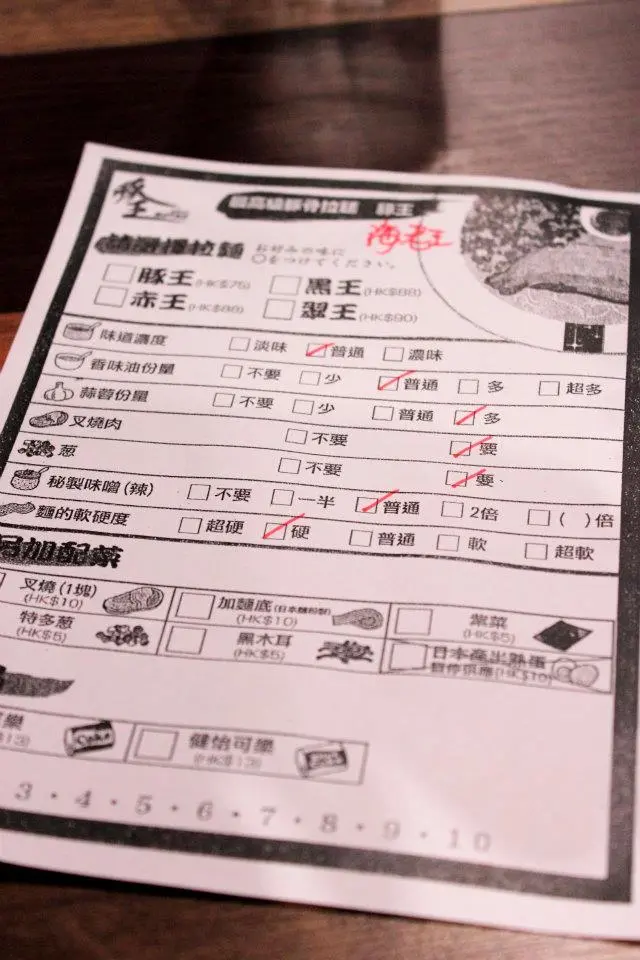 豚王
最高級豚骨拉麺 豚王
海老王
請選擇拉麺 お好みの味に
○をつけてください。
豚王(HK$75) 黒王(HK$88)
赤王(HK$88) 翠王(HK$90)
味道濃度 淡味 普通 濃味
香味油份量 不要 少 普通 多 超多
蒜蓉份量 不要 少 普通 多
叉燒肉 不要 要
葱 不要 要
秘製味噌(辣) 不要 一半 普通 2倍 ( )倍
麵的軟硬度 超硬 硬 普通 軟 超軟
另加配菜
叉燒(1塊) (HK$10) 加麵底(日本麵粉製) (HK$10) 紫菜 (HK$5)
特多葱 (HK$5) 黑木耳 (HK$5) 日本產出熟蛋 暫停供應(HK$10)
樂 Coke 健怡可樂 (HK$13)
3・4・5・6・7・8・9・10